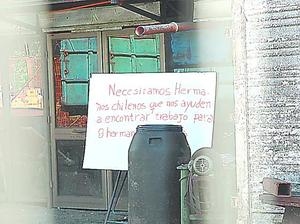 Necesitamos Herma-
nos chilenos que nos ayuden
a encontrar trabajo para
9 herman